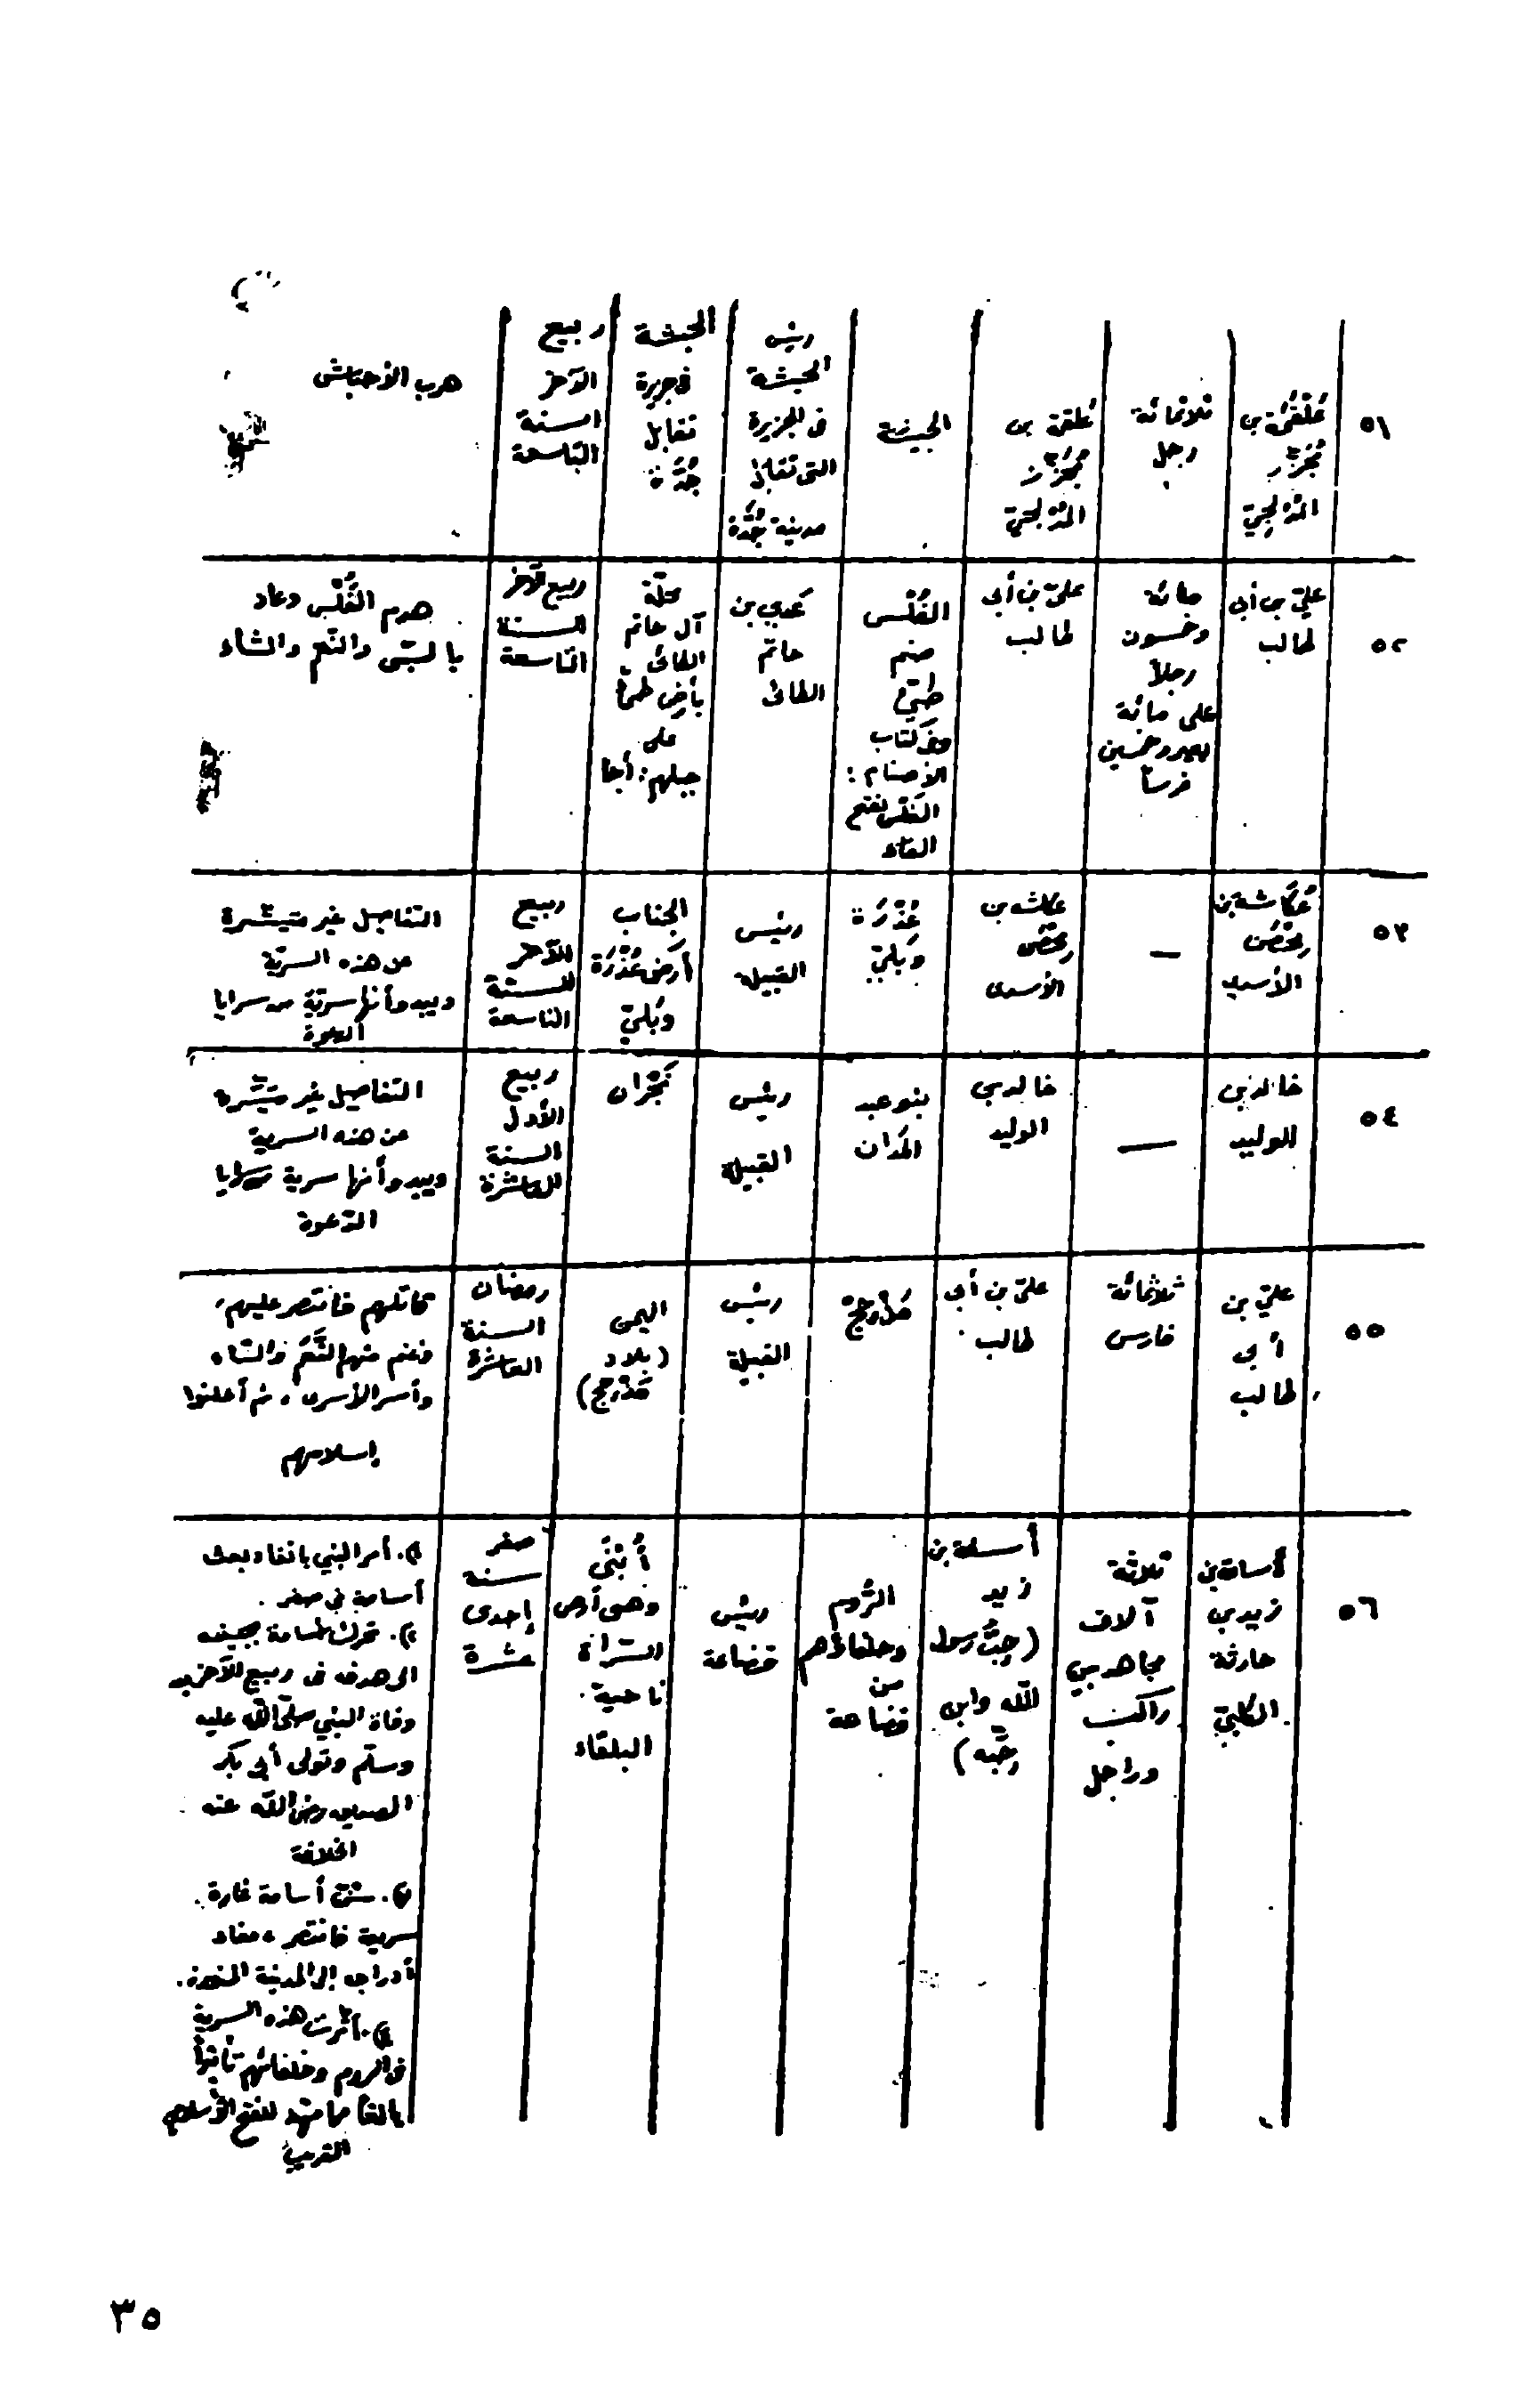 ٥١
عَلْقَمَة بن
مُجَزِّز
المُدْلِجيّ
ثلاثمائة
رجل
علقمة بن
مُجَزِّز
المُدْلجيّ
الحبشة
رئيس
الحبشة
فى الجزيرة
التى تقابل
مدينة جُدَّة
الحبشة
فى جزيرة
تقابل
جُدَّة
ربيع
الآخر
السنة
التاسعة
هرب الأحباش
٥٢
عليّ بن أبي
طالب
مائة
وخمسون
رجلاً
على مائة
بعير وخمسين
فرساً
عليّ بن أبى
طالب
الفُلْس
صنم
طيّئ
وفى كتاب
الأصنام :
الفَلْس بفتح
الفاء
عَدِي بن
حاتم
الطائى
محلّة
آل حاتم
الطائى
بأرض طيّئ
على
جبلهم : أجأ
ربيع الآخر
السنة
التاسعة
هدم الفُلْس وعاد
بالسبّى والنّعم والشاء
٥٣
عُكّاشة بن
مِحْصَن
الأسدي
—
عكاشه بن
مِحْصَن
الأسدى
عُذْرَة
وَبَليّ
رئيس
القبيلة
الجناب
أرض عُذْرَة
وبَليّ
ربيع
الآخر
السنة
التاسعة
التفاصيل غير متيسّرة
عن هذه السريّة
ويبدو أنها سريّة من سرايا
الدعوة
٥٤
خالد بن
الوليد
—
خالد بن
الوليد
بنو عبد
المَدَان
رئيس
القبيلة
نَجْرَان
ربيع
الأول
السنة
العاشرة
التفاصيل غير متيسّرة
عن هذه السرية
ويبدو أنها سرية من سرايا
الدّعوة
٥٥
عليّ بن
أبى
طالب
ثلاثمائة
فارس
عليّ بن أبى
طالب
مَذْحِج
رئيس
القبيلة
اليمن
(بلاد
مَذْحِج)
رمضان
السنة
العاشرة
قاتلهم فانتصر عليهم،
وغنم منهم النَّعَم والشاء
وأسر الأسرى ، ثم أعلنوا
إسلامهم
٥٦
أسامة بن
زيد بن
حارثة
الكلبيّ
ثلاثة
آلاف
مجاهد بين
راكب
وراجل
أسامة بن
زيد
(حِبُّ رسول
اللّه وابن
حِبّه)
الرُّوم
وحلفاؤهم
من
قضاعة
رئيس
قضاعة
أُبْنَى
وهى أرض
السّراة
ناحية
البلقاء
صفر
سنة
إحدى
عشرة
١). أمر النبي بانفاذ بعث
أسامة في صفر .
٢). تحرك أسامة بجيشه
الى هدفه فى ربيع الآخر بعد
وفاة النبي صلّى اللّه عليه
وسلّم وتولى أبى بكر
الصديق رضى اللّه عنه
الخلافة
٣). شنّ أسامة غارة
سريعة فانتصر ، وعاد
أدراجه إلى المدينة المنورة.
٤). أثّرت هذه السرية
فى الروم وحلفائهم تأثيراً
بالغاً مما مهّد للفتح الإسلامي
القريب
٣٥